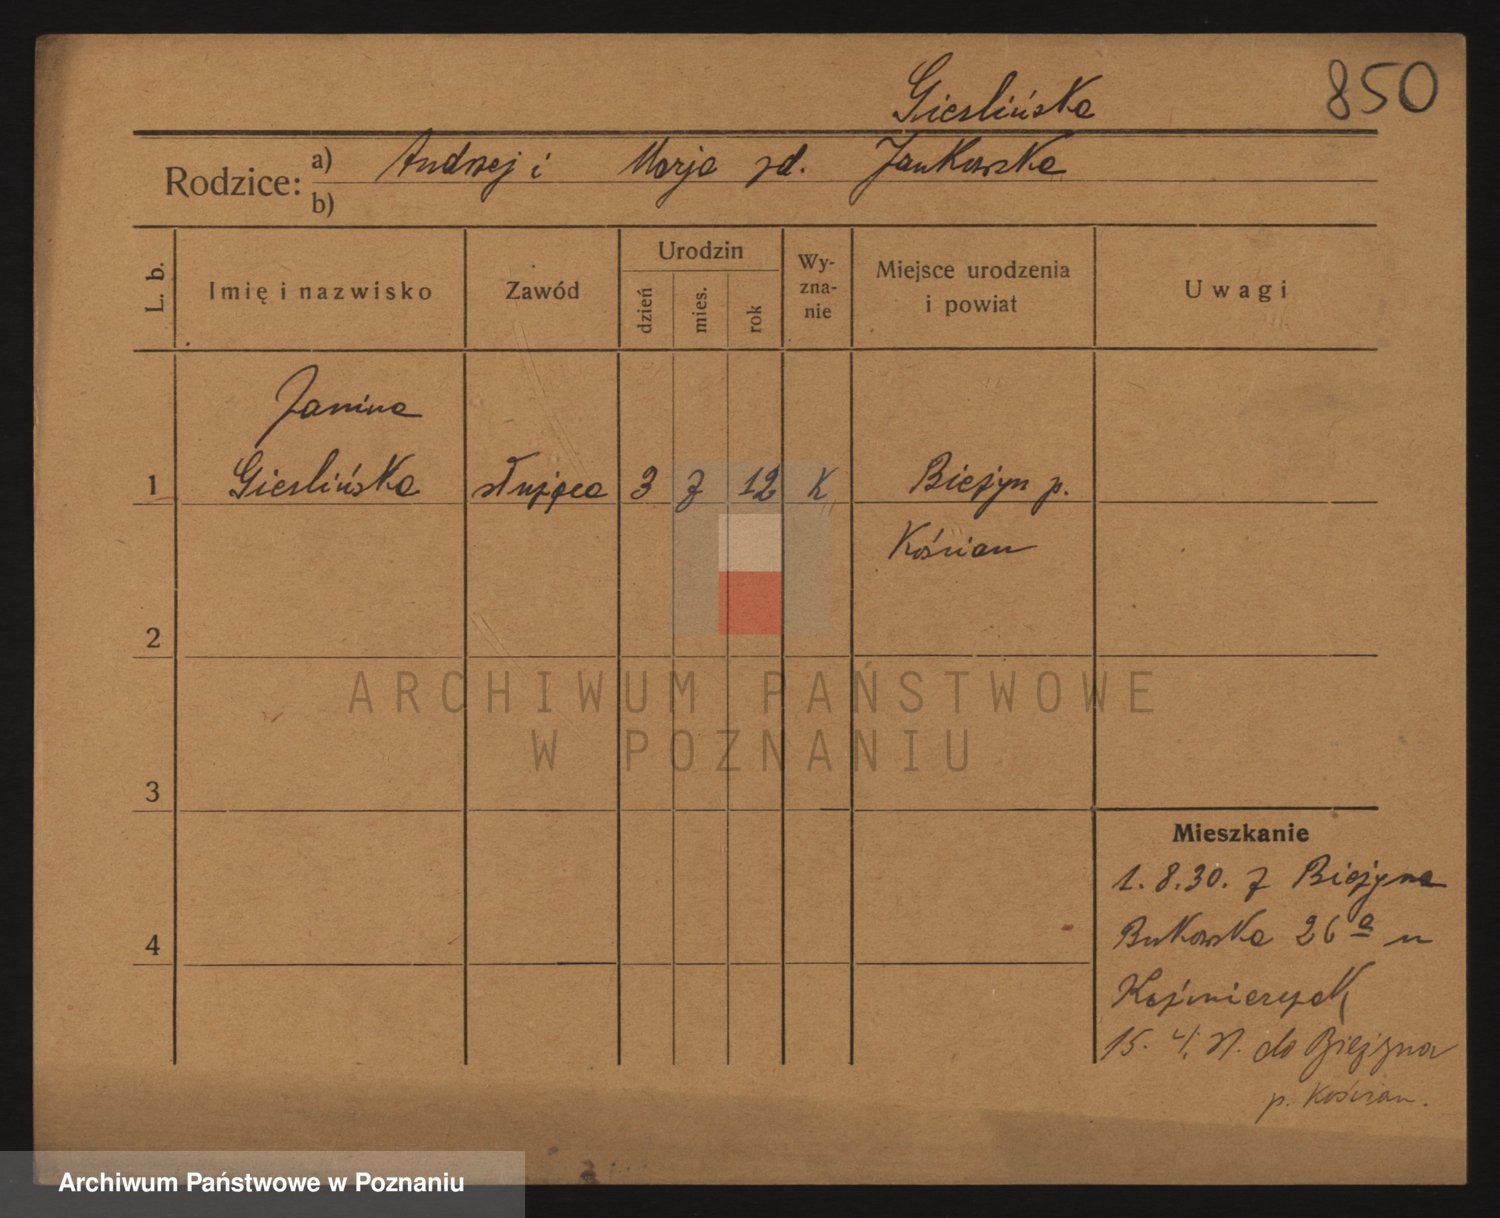 Gieslińska
850
Rodzice: a) Andrzej i Marja zd. Jankowska
b)
L. b.
Imię i nazwisko
Zawód
Urodzin
dzień
mies.
rok
Wy-
zna-
nie
Miejsce urodzenia
i powiat
Uwagi
Janina
1 Gieslińska służąca 3 7 12 K Bieżyn p.
Kościan
2
ARCHIWUM PAŃSTWOWE
W POZNANIU
3
Mieszkanie
1. 8. 30. z Bieżyna
4
Bukowska 26a u
Kaźmierczak
15. 4. 31. do Bieżyna
p. Kościan.
Archiwum Państwowe w Poznaniu